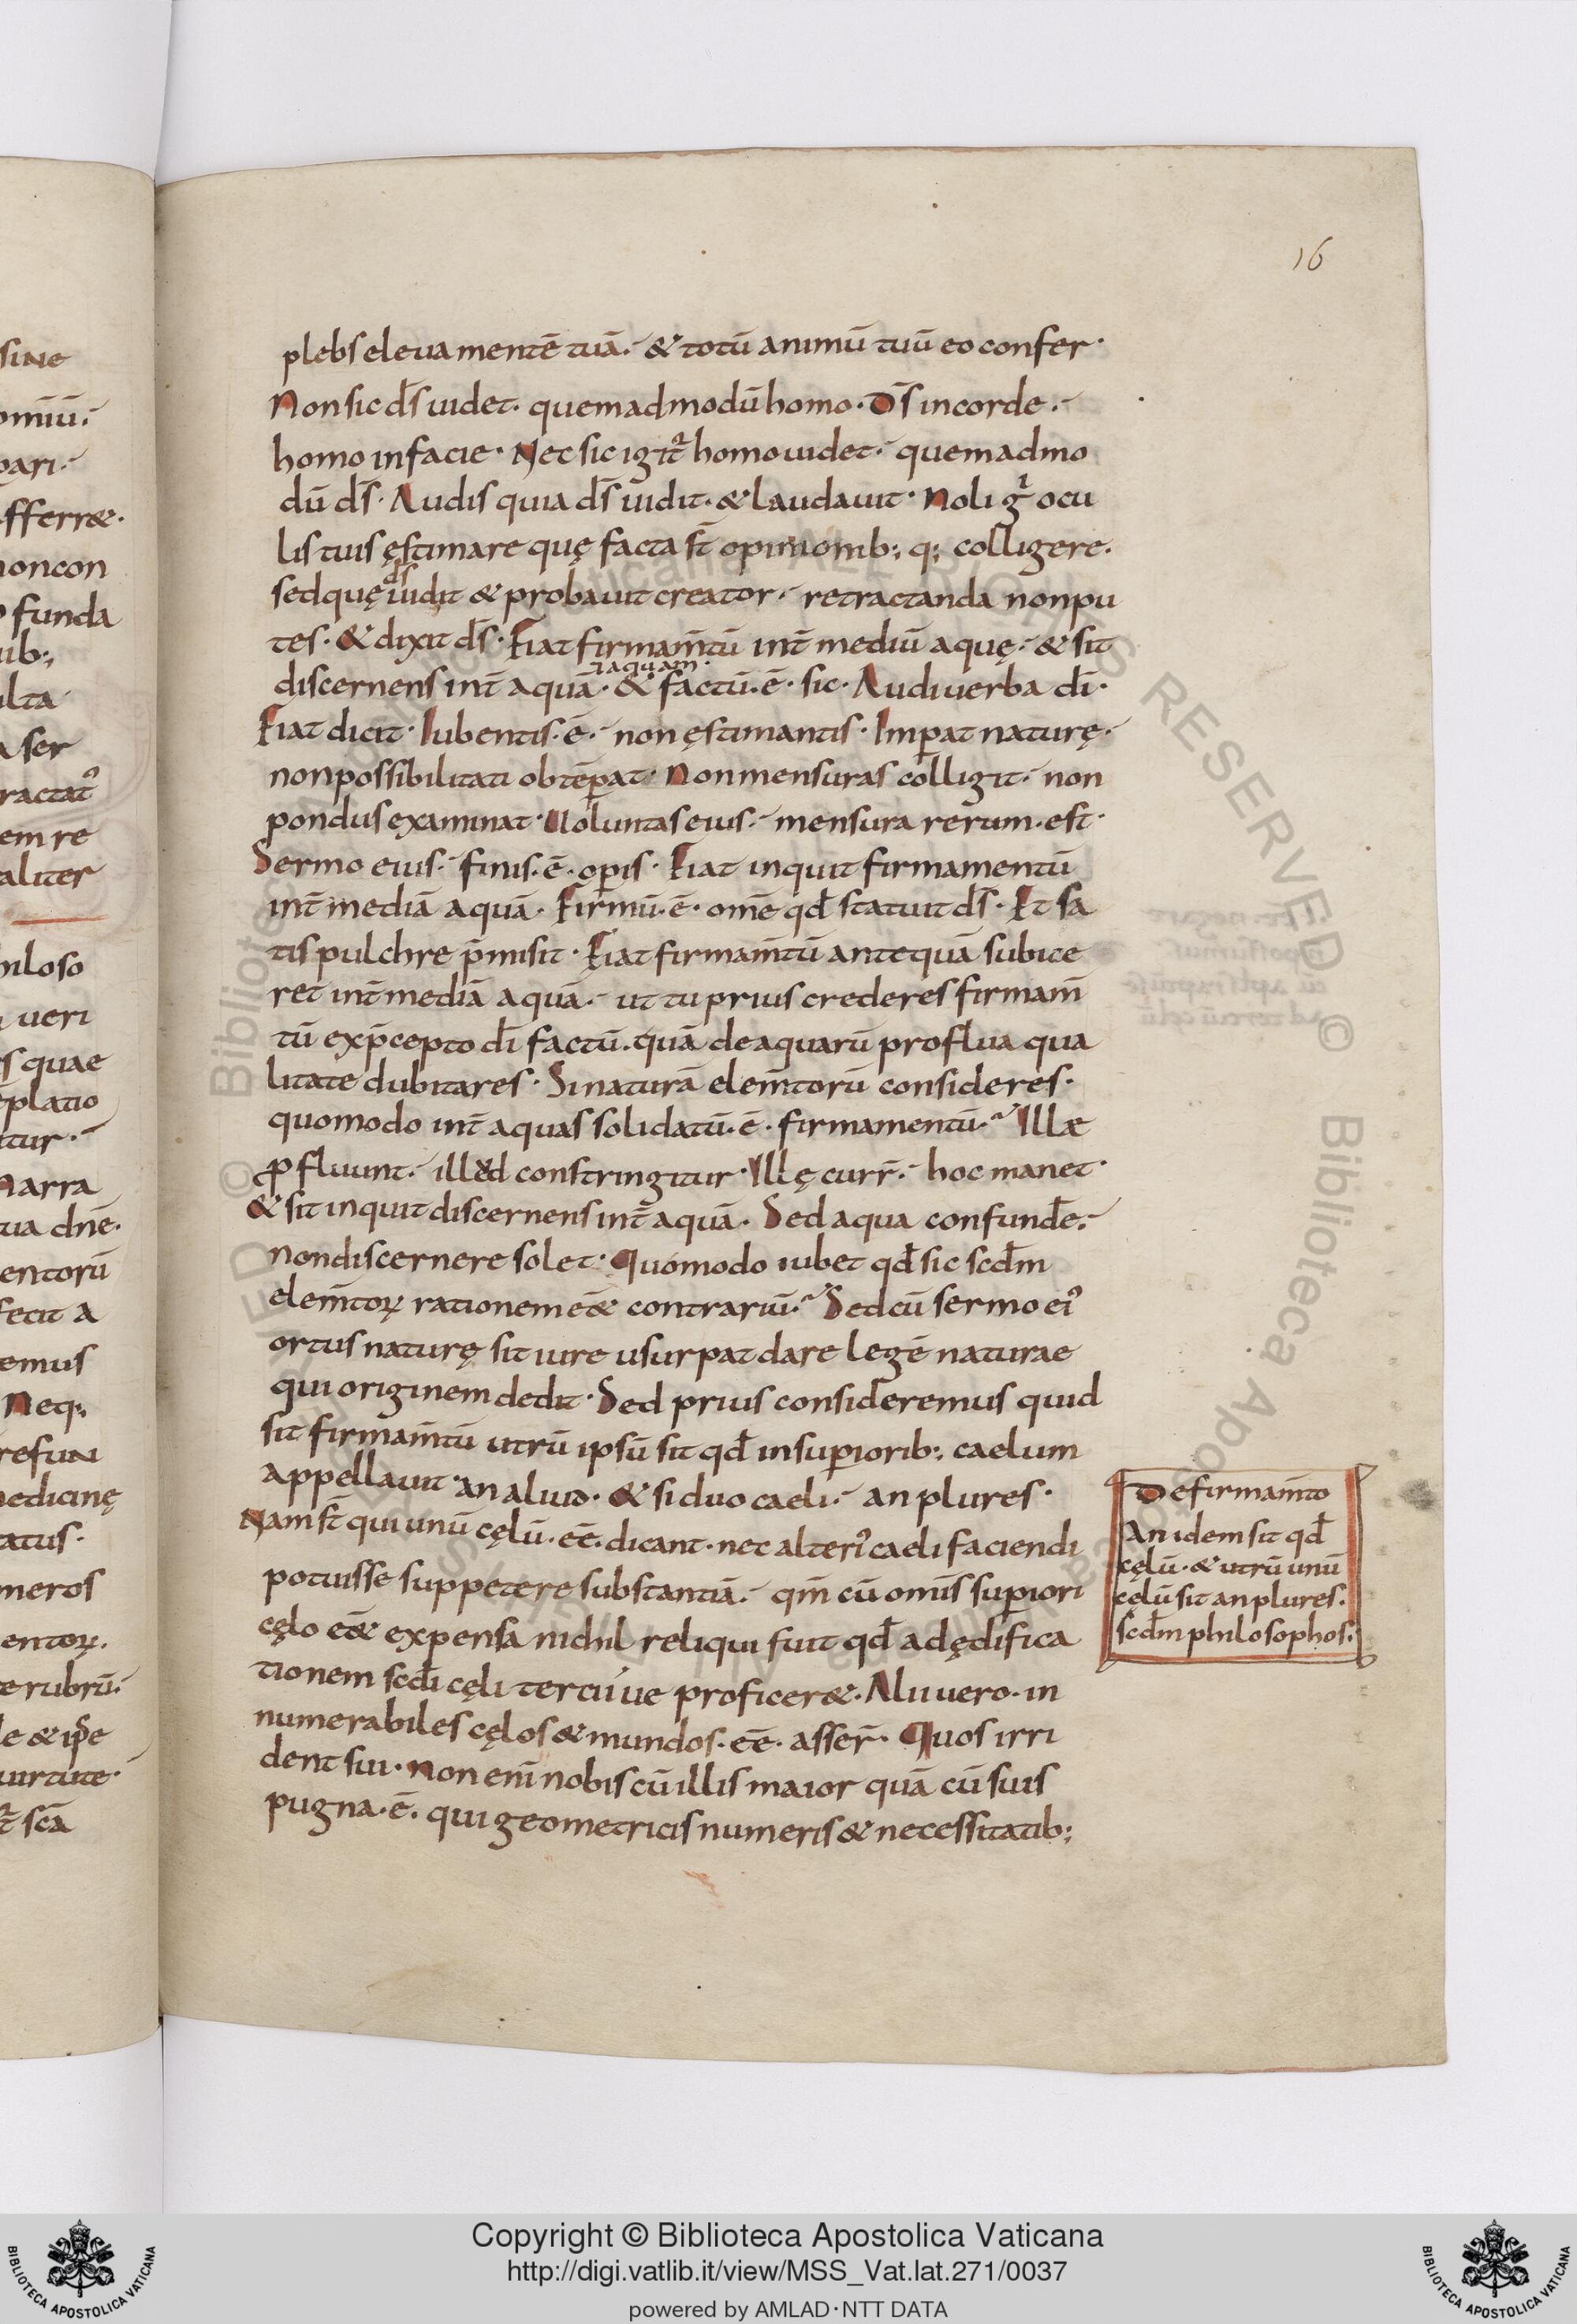 16
plebs eleua mentē tuā. & totū animū tuū eo confer.
Non sic d̄s uidet. quemadmodū homo. D̄s in corde.
homo in facie. Nec sic igit̃ homo uidet. quemadmo
dū d̄s. Audis quia d̄s uidit. & laudauit. Noli g̊ ocu
lis tuis ęstimare quę facta s̄t opinionib; q; colligere.
sed quę d̄s uidit & probauit creator. retractanda non pu
tes. & dixit d̄s. Fiat firmam̄tū int̄ mediū aquę. & sit
discernens int̄ aquā. ⁊ aquam. & factū. ē. sic. Audi uerba dī.
Fiat dicit. Iubentis. ē. non ęstimantis. Imꝑat naturę.
non possibilitati obtēꝑat. Non mensuras colligit. non
pondus examinat. Uoluntas eius. mensura rerum. est.
Sermo eius. finis. ē. oꝑis. Fiat inquit firmamentū
int̄ mediā aquā. Firmū. ē. om̄e qđ statuit d̄s. Et sa
tis pulchre p̄misit. Fiat firmam̄tū antequā subice
ret int̄ mediā aquā. ut tu prius crederes firmam̄
tū ex p̄cepto dī factū. quā de aquarū proflua qua
litate dubitares. Si naturā elem̄torū consideres.
quomodo int̄ aquas solidatū. ē. firmamentū. Illæ
ꝓfluunt. illud constringitur. Illę curr̄. hoc manet.
& sit inquit discernens int̄ aquā. Sed aqua confunđe.
non discernere solet. Quomodo iubet qđ sic scđm
elem̄toꝝ rationem ēē& contrariū. Sed cū sermo ei᾽
ortus naturę sit iure usurpat dare legē naturae
qui originem dedit. Sed prius consideremus quid
sit firmam̄tū utrū ipsū sit qđ in suꝑiorib; caelum
appellauit. an aliud. & si duo caeli. an plures.
Nam s̄t qui unū cęlū. ēē. dicant. nec alteri᾽ caeli faciendi
potuisse suppetere substantiā. qm̄ cū omīs suꝑiori
cęlo ēē& expensa nichil reliqui fuit qđ ad ędifica
tionem scđi cęli terciiue proficer&. Alii uero. in
numerabiles cęlos & mundos. ēē. asser̄. Quos irri
dent sui. Non enī nobis cū illis maior quā cū suis
pugna. ē. qui geometricis numeris & necessitatib;
De firmam̄to
An idem sit qđ
cęlū. & utrū unū
cęlū sit an plures.
scđm philosophos.
Copyright © Biblioteca Apostolica Vaticana
http://digi.vatlib.it/view/MSS_Vat.lat.271/0037
powered by AMLAD·NTT DATA
BIBLIOTECA APOSTOLICA VATICANA
BIBLIOTECA APOSTOLICA VATICANA